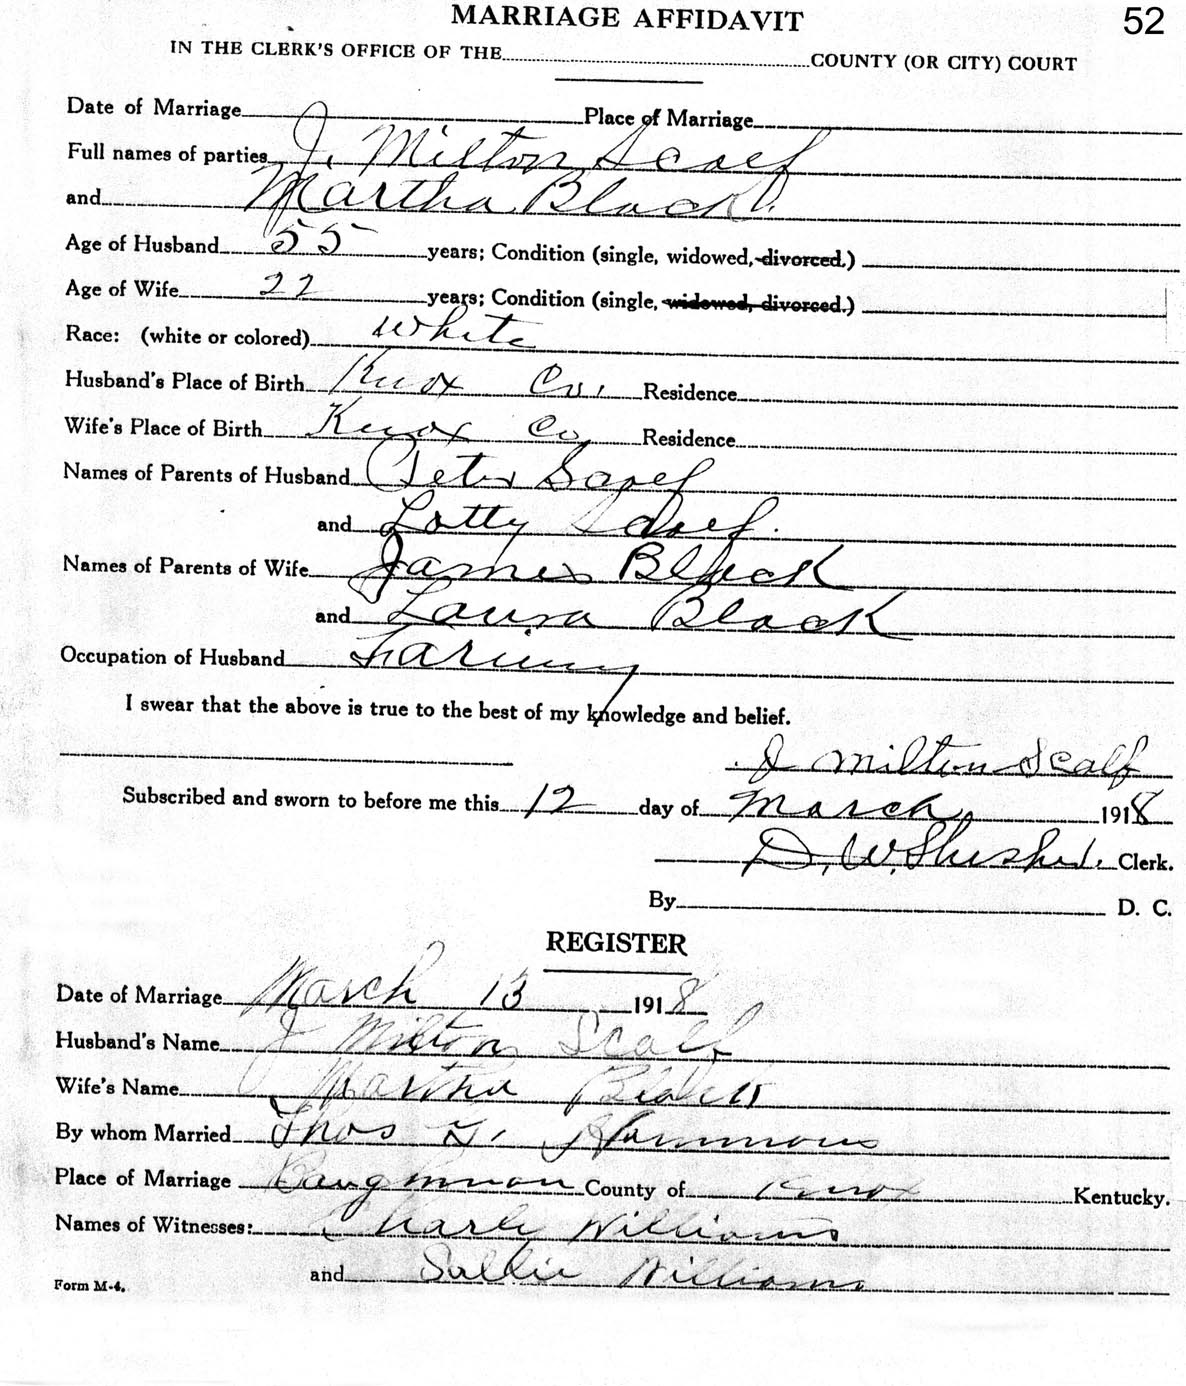 MARRIAGE AFFIDAVIT 52
IN THE CLERK'S OFFICE OF THE COUNTY (OR CITY) COURT
Date of Marriage Place of Marriage
Full names of parties J. Milton Scalf
and Martha Black.
Age of Husband 55 years; Condition (single, widowed, divorced.)
Age of Wife 22 years; Condition (single, widowed, divorced.)
Race: (white or colored) White
Husband's Place of Birth Knox Co. Residence
Wife's Place of Birth Knox Co Residence
Names of Parents of Husband Peter Scalf
and Lotty Scalf.
Names of Parents of Wife James Black
and Laura Black
Occupation of Husband Farming
I swear that the above is true to the best of my knowledge and belief.
J Milton Scalf
Subscribed and sworn to before me this 12 day of March 1918
D. W. Clerk.
By D. C.
REGISTER
Date of Marriage March 13 1918
Husband's Name J Milton Scalf
Wife's Name Martha Black
By whom Married Thos G. Hammons
Place of Marriage Baughman County of Knox Kentucky.
Names of Witnesses: Charly Williams
and Sallie Williams
Form M-4.